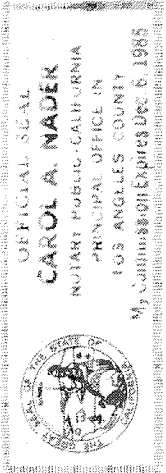 OFFICIAL SEAL
CAROL A. NADER
NOTARY PUBLIC CALIFORNIA
PRINCIPAL OFFICE IN
LOS ANGELES COUNTY
My Commission Expires Dec. 6, 1985
THE GREAT SEAL OF THE STATE OF CALIFORNIA